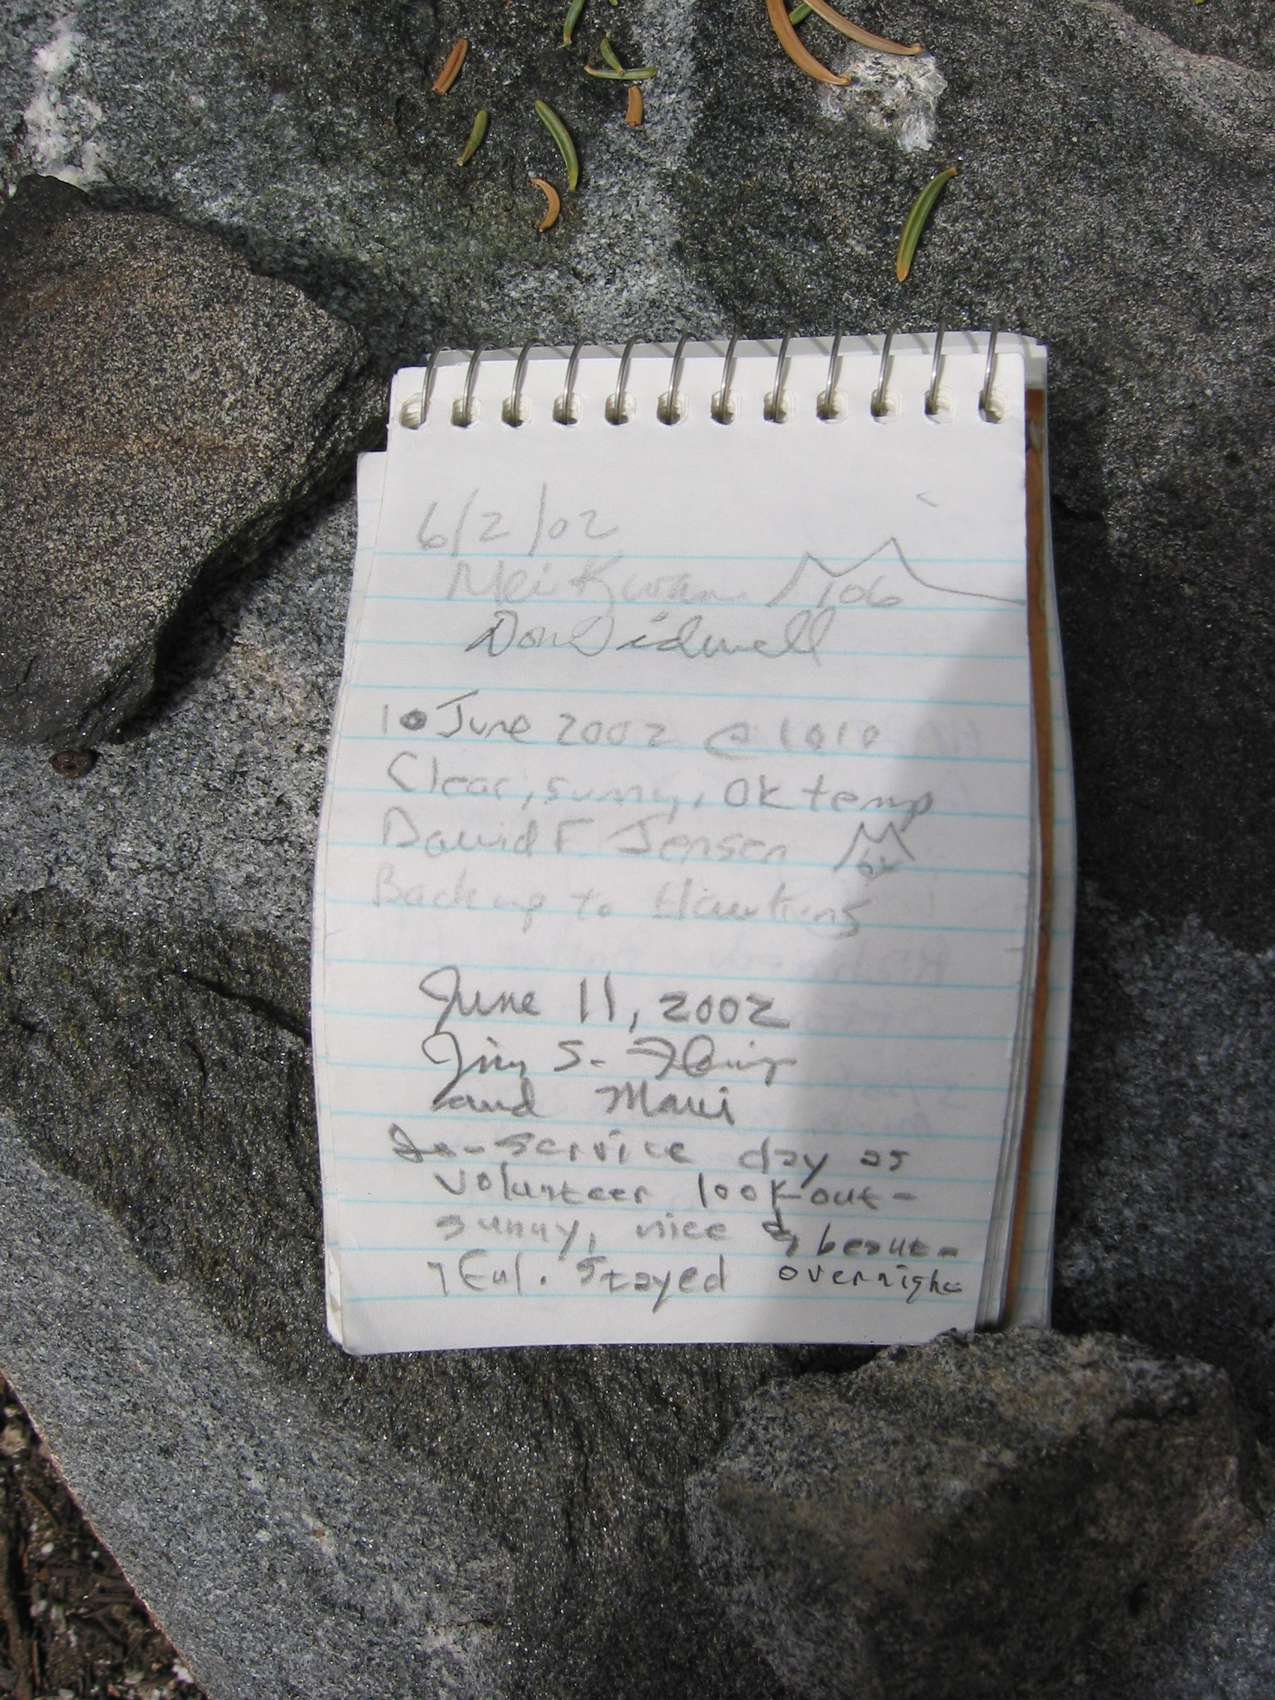 6/2/02
Mei Kwan 106
Don
10 June 2002 @ 1010
Clear, sunny, OK temp
David F. Jensen
Back up to Hawkins
June 11, 2002
Jim S.
and Maui
In-service day as
volunteer lookout-
sunny, nice & beaut-
iful. Stayed overnight